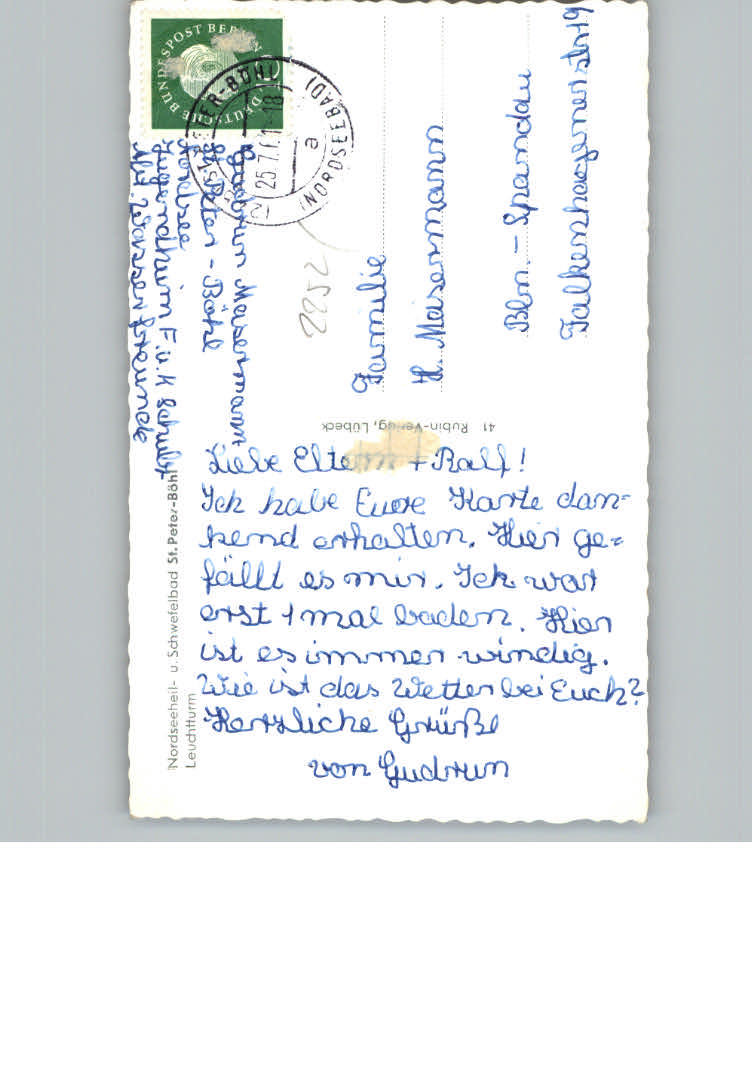 Liebe Eltern + Ralf!
Ich habe Eure Karte dan-
kend erhalten. Hier ge-
fällt es mir. Ich war
erst 1 mal baden. Hier
ist es immer windig.
Wie ist das Wetter bei Euch?
Herzliche Grüße
von Gudrun
Familie
H. Meisermann
Bln. - Spandau
Falkenhagenerstr 19
Gudrun Meisermann
St. Peter - Böhl
Nordsee
Jugendheim F. u. K. Schulz
Abt. Wasserfreunde
2252
DEUTSCHE BUNDESPOST BERLIN
PETER-BÖHL
(NORDSEEBAD)
25.7.61-18
a
41 Rubin-Verlag, Lübeck
Nordseeheil- u. Schwefelbad St. Peter-Böhl
Leuchtturm